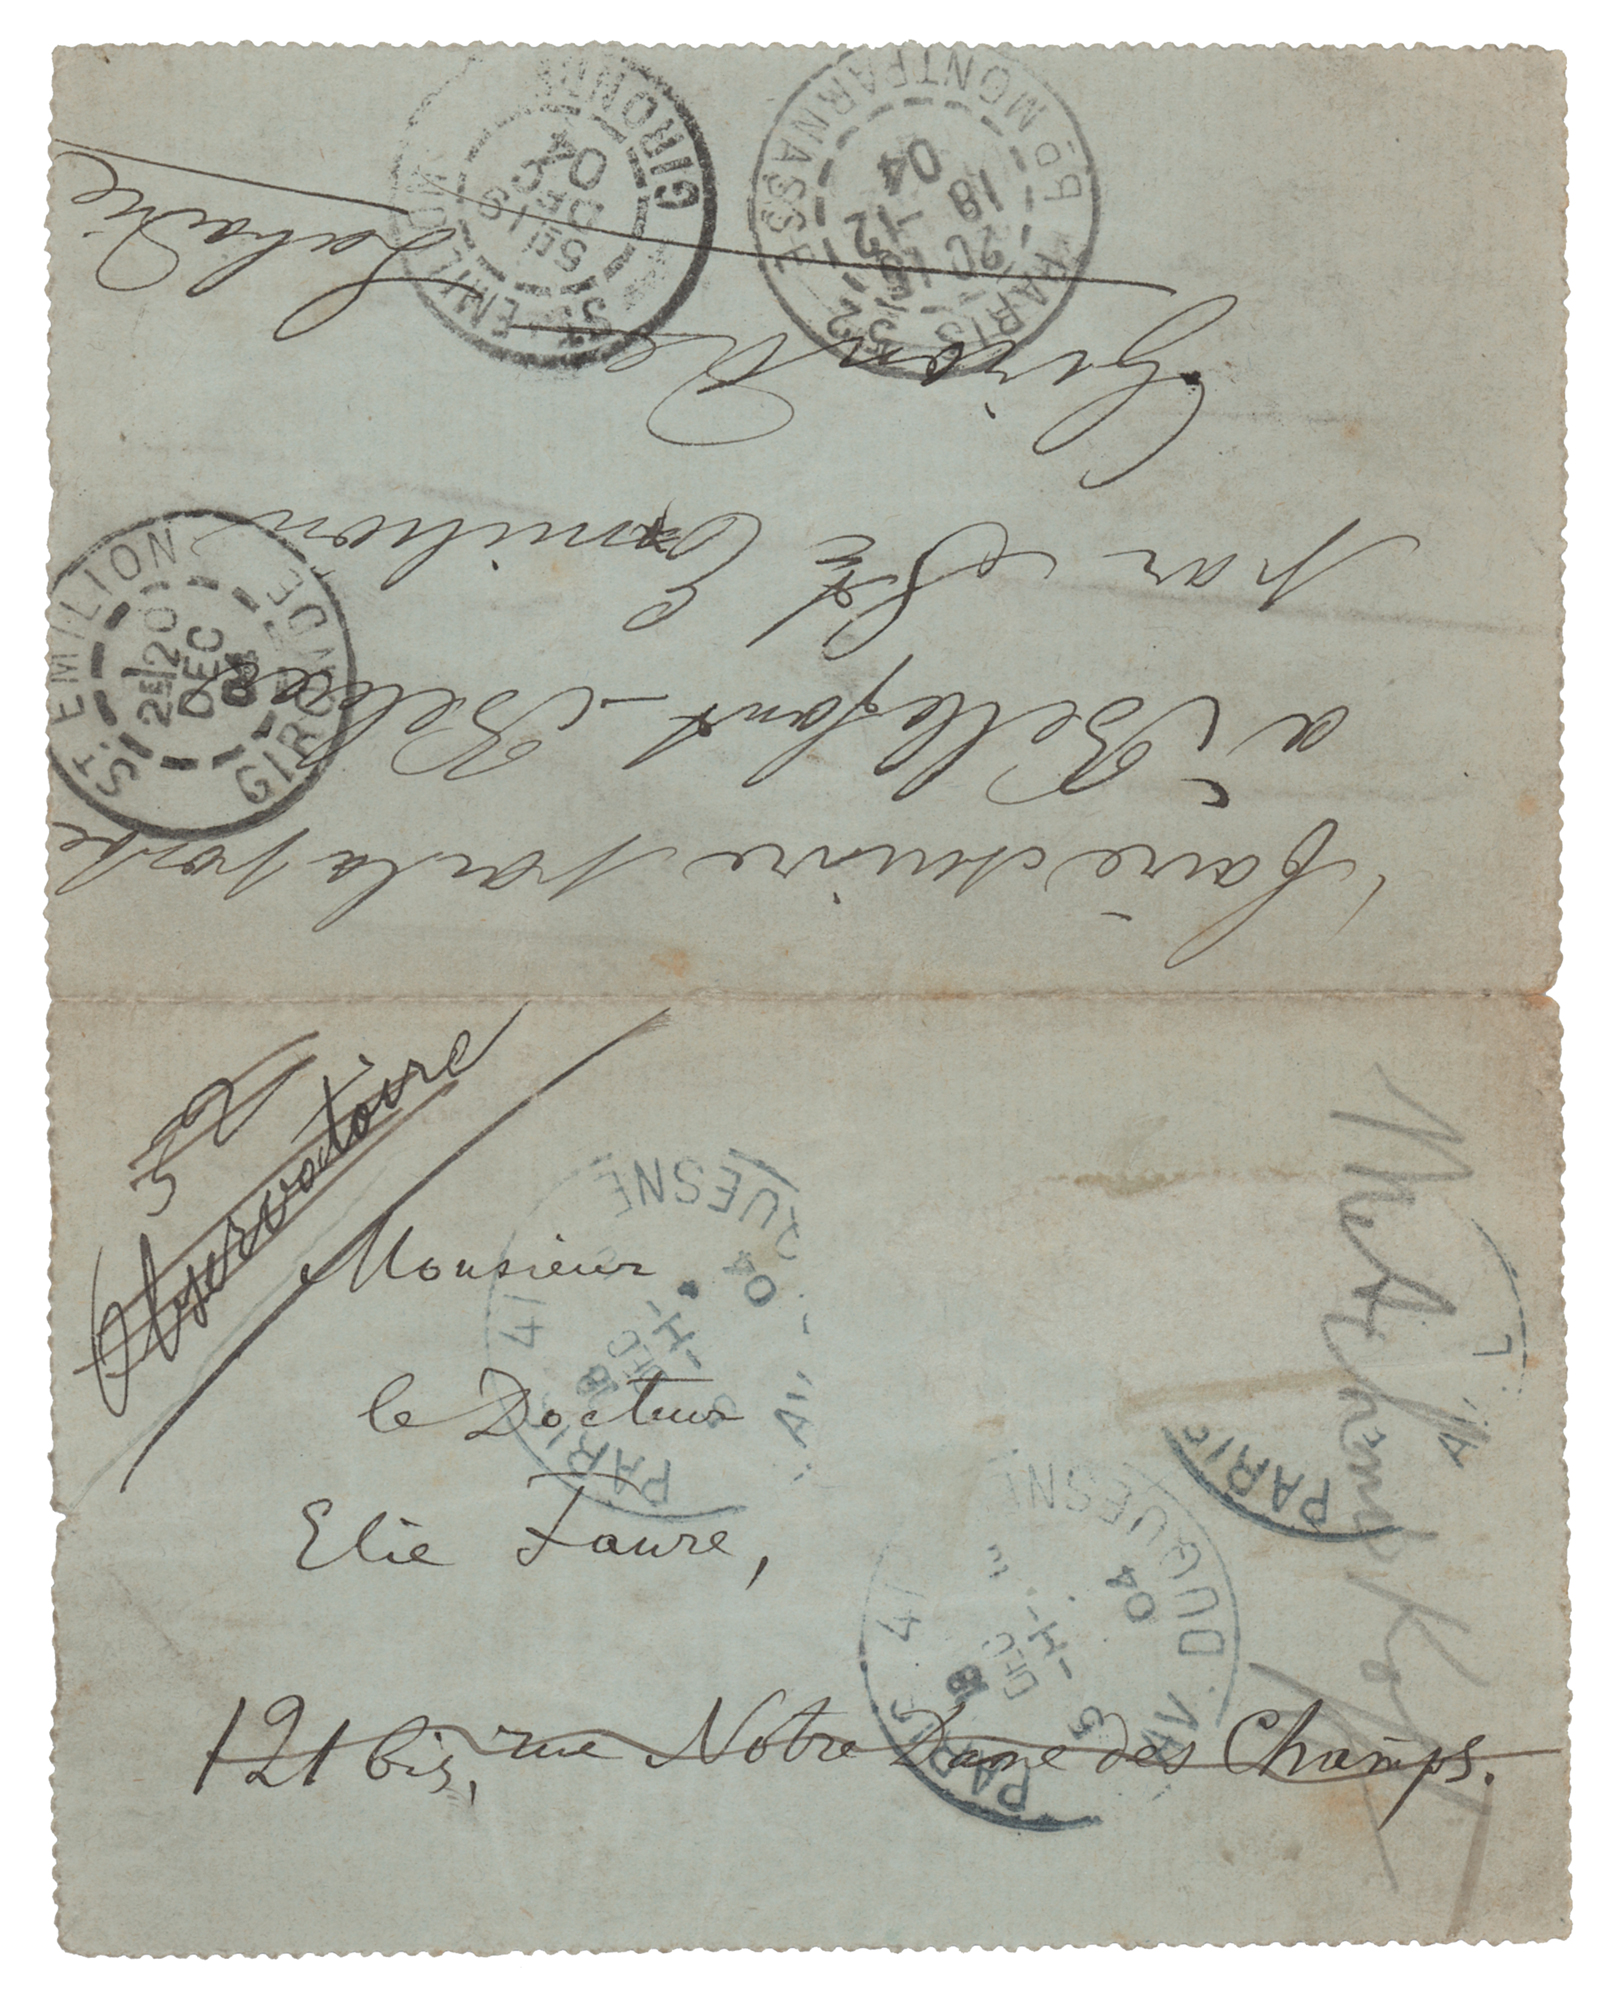 Faire suivre par la poste
à Bellefont-Belcier
par St Emilion
Gironde
ST EMILION
GIRONDE
5E/19
DEC
04
PARIS
MONTPARNASSE
18
12
04
ST EMILION
GIRONDE
2E/20
DEC
04
52
Observatoire
Monsieur
le Docteur
Elie Faure,
121 bis, rue Notre Dame des Champs.
PARIS 41
UESNE
AV.
18
DEC
04
PARIS
AV.
PARIS 41
AV. DUQUESNE
18
DEC
04